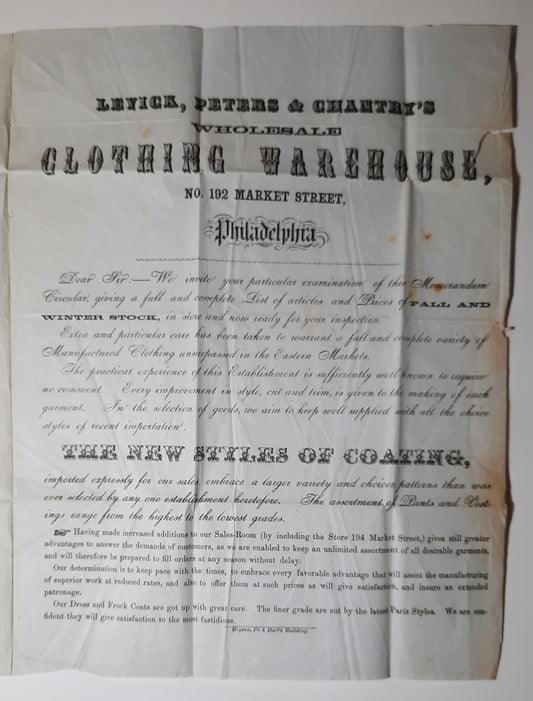 LEVICK, PETERS & CHANTRY'S
WHOLESALE
CLOTHING WAREHOUSE,
NO. 192 MARKET STREET,
Philadelphia
Dear Sir:—We invite your particular examination of this Memorandum
Circular, giving a full and complete List of articles and Prices of FALL AND
WINTER STOCK, in store and now ready for your inspection.
Extra and particular care has been taken to warrant a full and complete variety of
Manufactured Clothing unsurpassed in the Eastern Markets.
The practical experience of this Establishment is sufficiently well known to require
no comment. Every improvement in style, cut and trim, is given to the making of each
garment. In the selection of goods, we aim to keep well supplied with all the choice
styles of recent importation.
THE NEW STYLES OF COATING,
imported expressly for our sales, embrace a larger variety and choicer patterns than was
ever selected by any one establishment heretofore. The assortment of Pants and Vest-
ings range from the highest to the lowest grades.
☞ Having made increased additions to our Sales-Room (by including the Store 194 Market Street,) gives still greater
advantages to answer the demands of customers, as we are enabled to keep an unlimited assortment of all desirable garments,
and will therefore be prepared to fill orders at any season without delay.
Our determination is to keep pace with the times, to embrace every favorable advantage that will assist the manufacturing
of superior work at reduced rates, and also to offer them at such prices as will give satisfaction, and insure an extended
patronage.
Our Dress and Frock Coats are got up with great care. The finer grade are cut by the latest Paris Styles. We are con-
fident they will give satisfaction to the most fastidious.
Bryson, Pr. 4 Hart's Building.